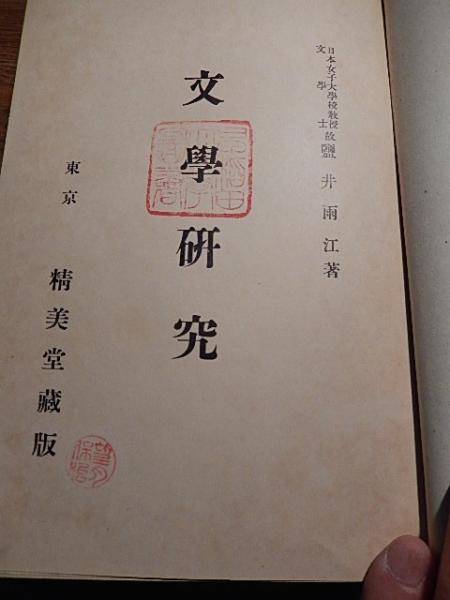 日本女子大學校教授
文學士
故鹽井雨江著
文學硏究
東京
精美堂藏版